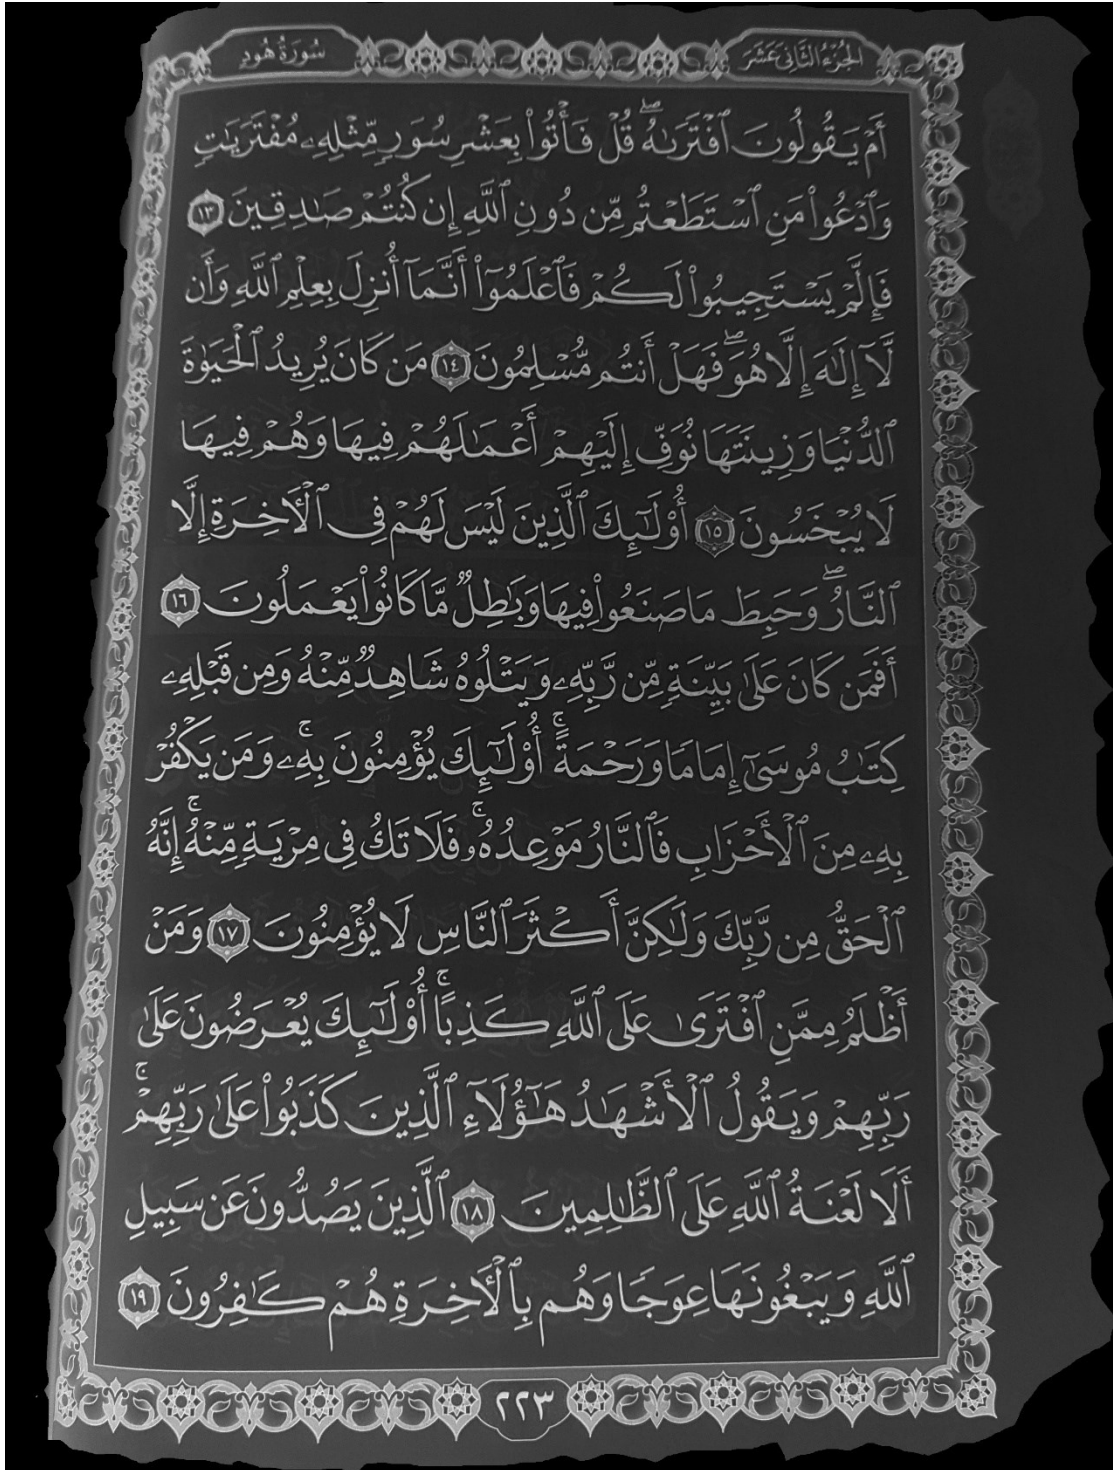 الجزء الثاني عشر
سورة هود
أَمْ يَقُولُونَ ٱفْتَرَىٰهُۖ قُلْ فَأْتُوا۟ بِعَشْرِ سُوَرٍ مِّثْلِهِۦ مُفْتَرَيَٰتٍ
وَٱدْعُوا۟ مَنِ ٱسْتَطَعْتُم مِّن دُونِ ٱللَّهِ إِن كُنتُمْ صَٰدِقِينَ ١٣
فَإِلَّمْ يَسْتَجِيبُوا۟ لَكُمْ فَٱعْلَمُوٓا۟ أَنَّمَآ أُنزِلَ بِعِلْمِ ٱللَّهِ وَأَن
لَّآ إِلَٰهَ إِلَّا هُوَۖ فَهَلْ أَنتُم مُّسْلِمُونَ ١٤ مَن كَانَ يُرِيدُ ٱلْحَيَوٰةَ
ٱلدُّنْيَا وَزِينَتَهَا نُوَفِّ إِلَيْهِمْ أَعْمَٰلَهُمْ فِيهَا وَهُمْ فِيهَا
لَا يُبْخَسُونَ ١٥ أُو۟لَٰٓئِكَ ٱلَّذِينَ لَيْسَ لَهُمْ فِى ٱلْءَاخِرَةِ إِلَّا
ٱلنَّارُۖ وَحَبِطَ مَا صَنَعُوا۟ فِيهَا وَبَٰطِلٌ مَّا كَانُوا۟ يَعْمَلُونَ ١٦
أَفَمَن كَانَ عَلَىٰ بَيِّنَةٍ مِّن رَّبِّهِۦ وَيَتْلُوهُ شَاهِدٌ مِّنْهُ وَمِن قَبْلِهِۦ
كِتَٰبُ مُوسَىٰٓ إِمَامًا وَرَحْمَةًۚ أُو۟لَٰٓئِكَ يُؤْمِنُونَ بِهِۦۚ وَمَن يَكْفُرْ
بِهِۦ مِنَ ٱلْأَحْزَابِ فَٱلنَّارُ مَوْعِدُهُۥۚ فَلَا تَكُ فِى مِرْيَةٍ مِّنْهُۚ إِنَّهُ
ٱلْحَقُّ مِن رَّبِّكَ وَلَٰكِنَّ أَكْثَرَ ٱلنَّاسِ لَا يُؤْمِنُونَ ١٧ وَمَنْ
أَظْلَمُ مِمَّنِ ٱفْتَرَىٰ عَلَى ٱللَّهِ كَذِبًاۚ أُو۟لَٰٓئِكَ يُعْرَضُونَ عَلَىٰ
رَبِّهِمْ وَيَقُولُ ٱلْأَشْهَٰدُ هَٰٓؤُلَآءِ ٱلَّذِينَ كَذَبُوا۟ عَلَىٰ رَبِّهِمْۚ
أَلَا لَعْنَةُ ٱللَّهِ عَلَى ٱلظَّٰلِمِينَ ١٨ ٱلَّذِينَ يَصُدُّونَ عَن سَبِيلِ
ٱللَّهِ وَيَبْغُونَهَا عِوَجًا وَهُم بِٱلْءَاخِرَةِ هُمْ كَٰفِرُونَ ١٩
٢٢٣